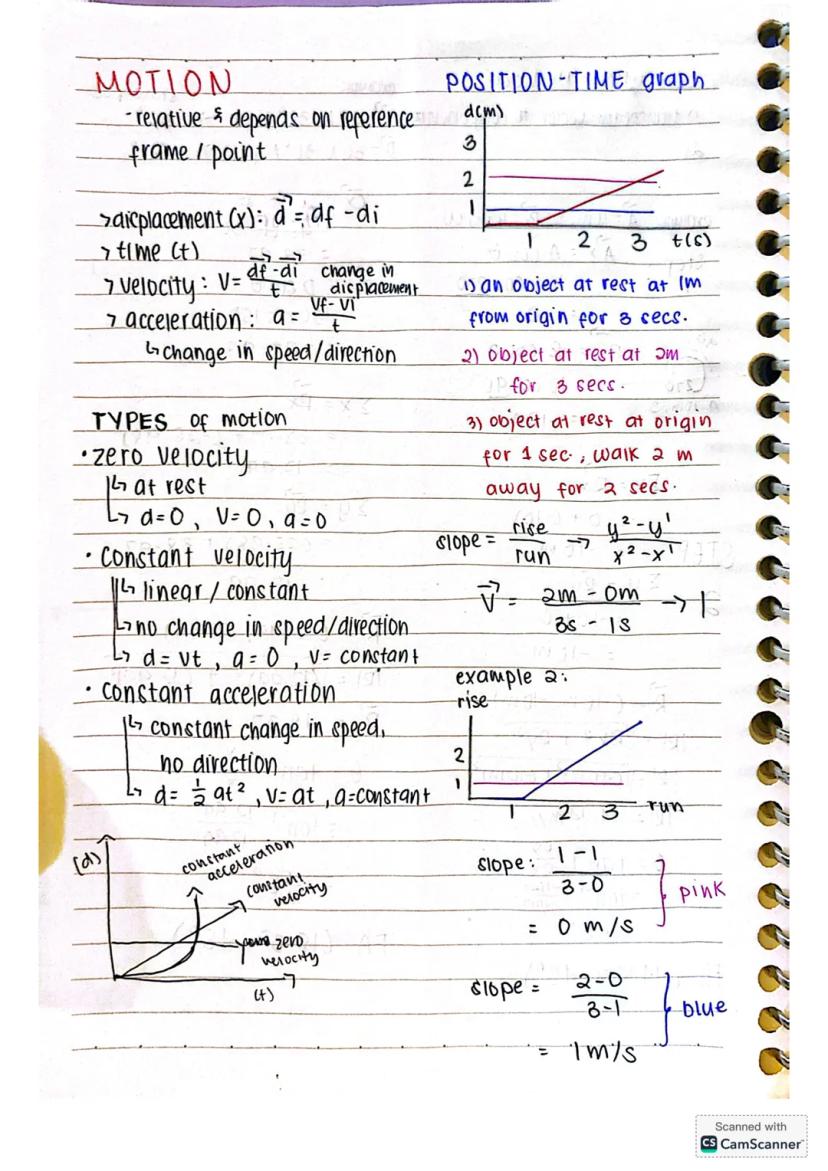 MOTION
- relative & depends on reference
frame / point
> displacement (x): d = df - di
> time (t)
> velocity : V = df - di / t change in displacement
> acceleration : a = Vf - Vi / t
↳ change in speed/direction
TYPES of motion
• zero velocity
↳ at rest
↳ d=0, V=0, a=0
• Constant velocity
↳ linear / constant
↳ no change in speed/direction
↳ d = vt, a = 0, v = constant
• Constant acceleration
↳ constant change in speed,
no direction
↳ d = 1/2 at², v = at, a = constant
(d)
constant
acceleration
constant
velocity
zero
velocity
(t)
POSITION-TIME graph
d(m)
3
2
1
1 2 3 t(s)
1) an object at rest at 1m
from origin for 3 secs.
2) object at rest at 2m
for 3 secs.
3) object at rest at origin
for 1 sec, walk 2 m
away for 2 secs.
slope = rise / run → y² - y¹ / x² - x¹
V = 2m - 0m / 3s - 1s → 1
example 2:
rise
2
1
1 2 3 run
slope: 1 - 1 / 3 - 0
= 0 m/s
pink
slope = 2-0 / 3-1
= 1 m/s
blue
Scanned with
CS CamScanner